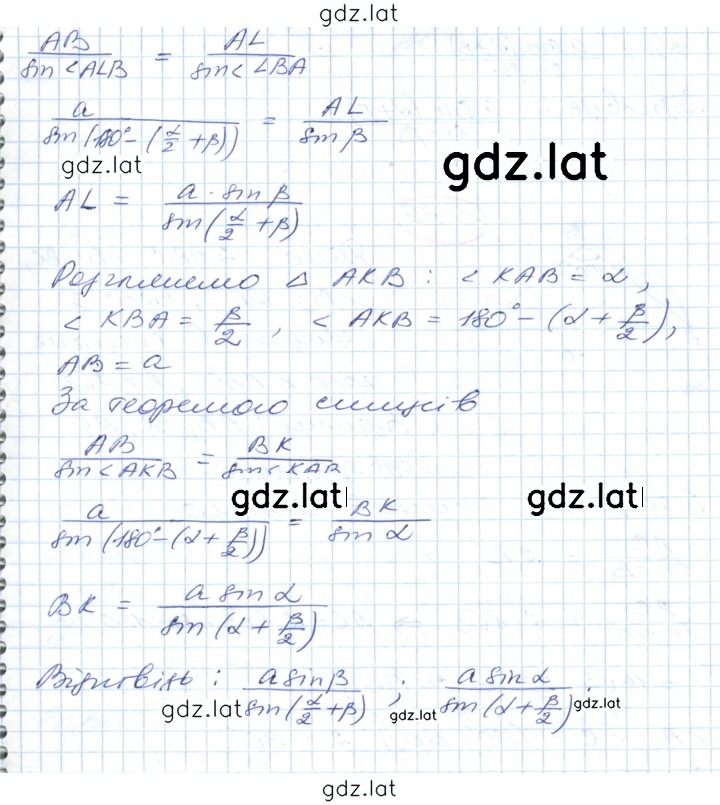 gdz.lat
AB / sin <ALB = AL / sin < LBA
a / sin (180° - (α/2 + β)) = AL / sin β
gdz.lat
gdz.lat
AL = a · sin β / sin (α/2 + β)
Розглянемо △ AKB : < KAB = α,
< KBA = β/2, < AKB = 180° - (α + β/2),
AB = a
За теоремою синусів
AB / sin < AKB = BK / sin < KAB
gdz.lat gdz.lat
a / sin (180° - (α + β/2)) = BK / sin α
BK = a sin α / sin (α + β/2)
Відповідь : a sin β / sin (α/2 + β) ; a sin α / sin (α + β/2).
gdz.lat gdz.lat gdz.lat
gdz.lat